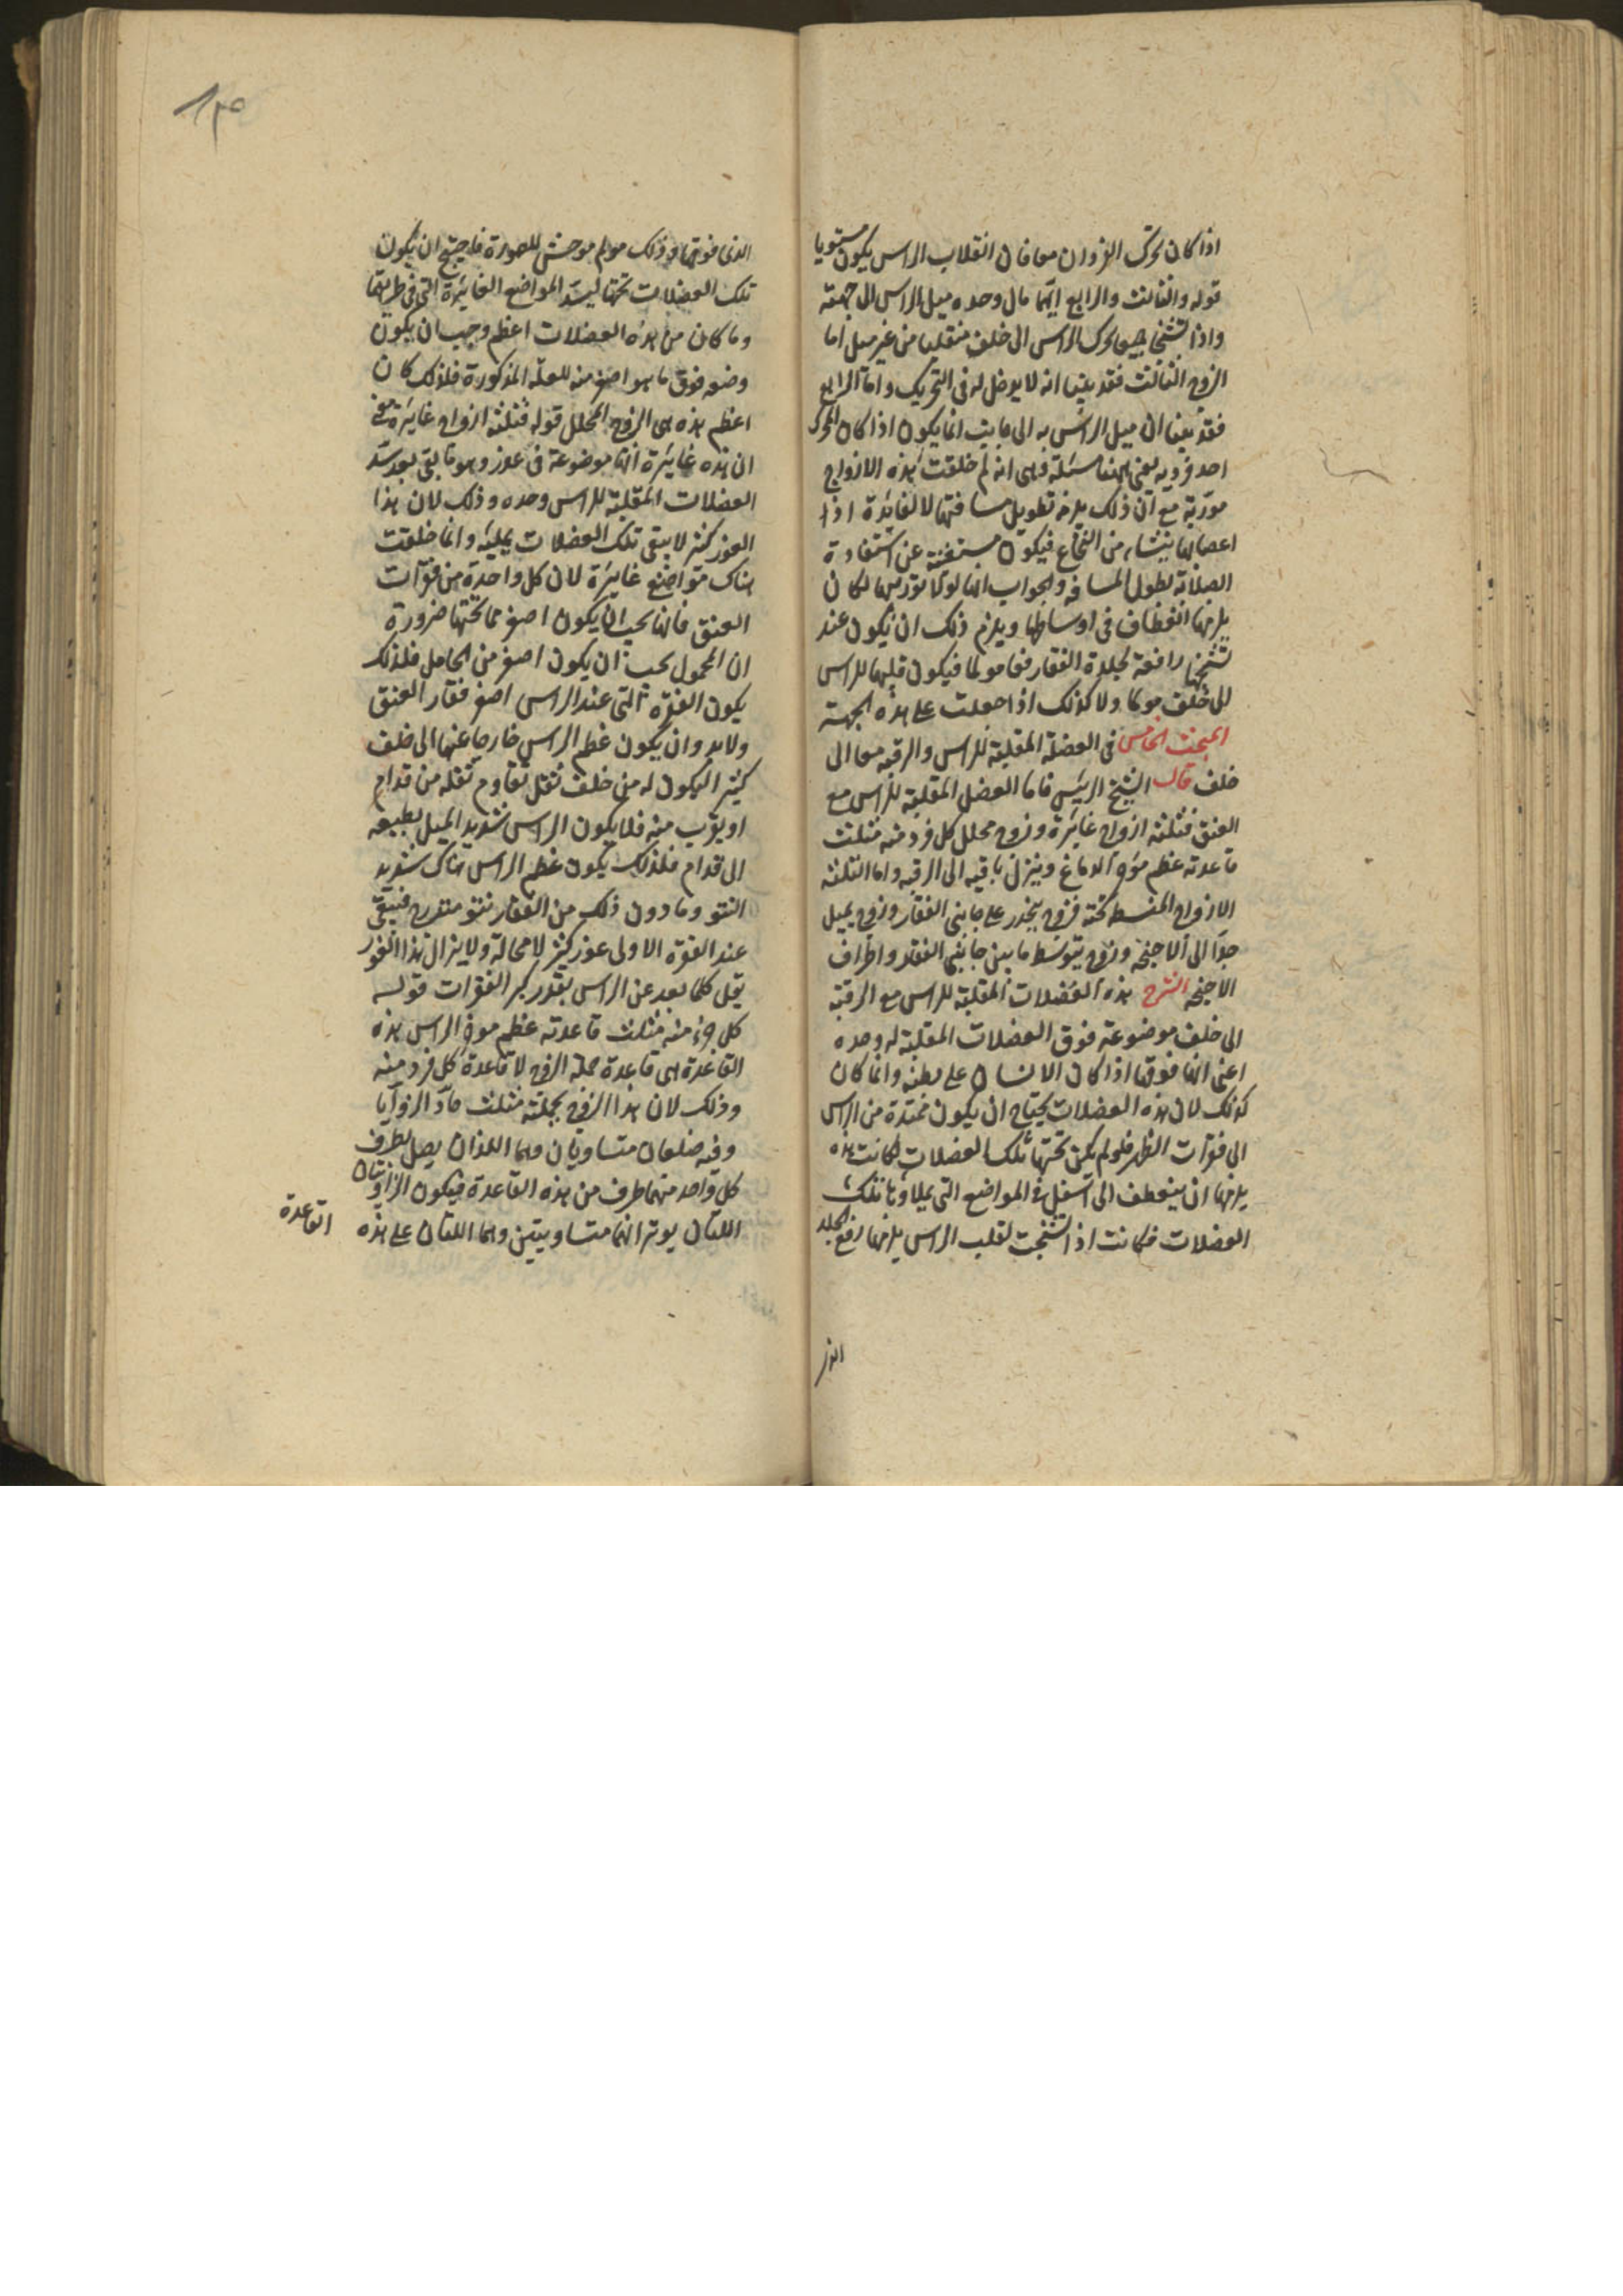 اذا كان تحرك الفردان معا فان انقلاب الراس يكون مستويا
قوله والثالث والرابع ايهما مال وحده ميل الراس الى جهته
واذا تشنجا جميعا تحرك الراس الى خلف منقلبا من غير ميل اما
الزوج الثالث فقد بينا انه لا يدخل له فى التحريك واما الرابع
فقد بينا ان ميل الراس به الى جانب انما يكون اذا كان المحرك
احد فرديه بقى ههنا مسئلة وهى انه لم خلقت هذه الازواج
مورّبة مع ان ذلك يلزمه تطويل مسافتها لا لفايدة اذ
اعصابها ينشاء من النخاع فيكون مستغنية عن استفادة
الصلابة لطول المسافه والجواب انها لولا توريبها لكان
يلزمها انعطاف فى اوساطها ويلزم ذلك ان يكون عند
تشنجها رافعة لجلدة القفا رفعا مولما فيكون قلبها للراس
الى خلف مولما ولا كذلك اذا جعلت على هذه الجهة
المبحث الخامس فى العضلة المقلبة للراس والرقبه معا الى
خلف قال الشيخ الرئيس فاما العضل المقلبة للراس مع
العنق فثلثه ازواج غايرة وزوج مجلل كل فرد منه مثلث
قاعدته عظم موخر الدماغ وينزل باقيه الى الرقبه واما الثلثه
الازواج المنبسط تحته فزوج ينحدر على جانبى الفقار وزوج يميل
جدا الى الاجنحة وزوج يتوسط ما بين جانبى الفقار واطراف
الاجنحه الشرح هذه العضلات المقلبة للراس مع الرقبة
الى خلف موضوعة فوق العضلات المقلبة له وحده
اعنى انها فوقها اذا كان الانسان على بطنه وانما كان
كذلك لان هذه العضلات يحتاج ان يكون ممتدة من الراس
الى فقرات الظهر فلو لم يكن تحتها تلك العضلات لكانت هذه
يلزمها ان ينعطف الى اسفل فى المواضع التى يملاؤها تلك
العضلات فكانت اذا تشنجت لقلب الراس يلزمها رفع الجلد
الذى
الذى فوقها وذلك مولم موحش للصورة فاحتيج ان يكون
تلك العضلات تحتها ليسد المواضع الغايرة التى فى طريقها
وما كان من هذه العضلات اعظم وجب ان يكون
وضعه فوق ما هو اصغر منه للعلّة المذكورة فلذلك كان
اعظم هذه هى الزوج المجلل قوله فثلثة ازواج غايرة معنى
ان هذه غايرة انها موضوعة فى غور وهو ما بقى بعد سد
العضلات المقلبة للراس وحده وذلك لان هذا
الغور كثير لا يبقى تلك العضلات بمليه وانما خلقت
هناك مواضع غايرة لان كل واحدة من فقرات
العنق فانها يجب ان يكون اصغر مما تحتها ضرورة
ان المحمول يجب ان يكون اصغر من الحامل فلذلك
يكون الفقرة التى عند الراس اصغر فقار العنق
ولا بد وان يكون عظم الراس خارجا عنها الى خلف
كثيرا ليكون له من خلف ثقل تقاوم ثقله من قدام
او يقرب منه فلا يكون الراس شديد الميل بطبيعه
الى قدام فلذلك يكون عظم الراس هناك شديد
النتو وما دون ذلك من الفقار نتو متدرج فيبقى
عند الفقرة الاولى غور كثير لا محالة ولا يزال هذا الغور
يقل كلما بعد عن الراس بقدر كبر الفقرات قوله
كل جزء منه مثلث قاعدته عظم موخر الراس هذه
القاعدة هى قاعدة جملة الزوج لا قاعدة كل فرد منه
وذلك لان هذا الزوج بجملته مثلث حادّ الزوايا
وفيه ضلعان متساويان وهما اللذان يصل بطرف
كل واحد منهما طرف من هذه القاعدة فيكون الزاويتان
اللتان يوترانهما متساويتين وهما اللتان على هذه
القاعدة